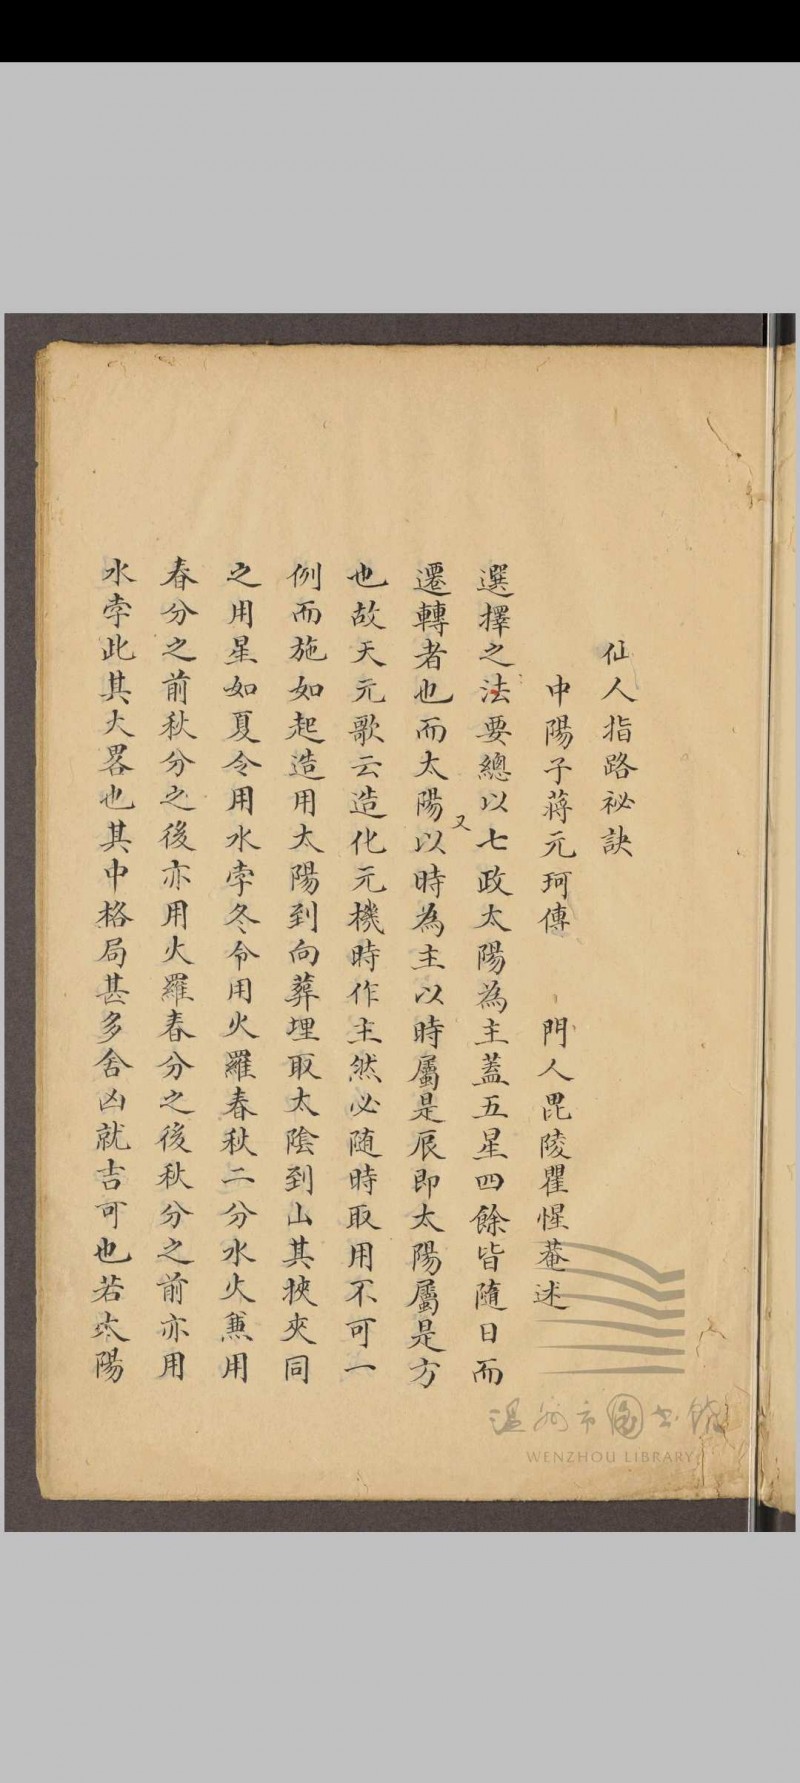 仙人指路祕訣
中陽子蔣元珂傳　門人毘陵瞿惺菴述
選擇之法要總以七政太陽為主蓋五星四餘皆隨日而
遷轉者也而太陽又以時為主以時屬是辰即太陽屬是方
也故天元歌云造化元機時作主然必隨時取用不可一
例而施如起造用太陽到向葬埋取太陰到山其挾夾同
之用星如夏令用水孛冬令用火羅春秋二分水火兼用
春分之前秋分之後亦用火羅春分之後秋分之前亦用
水孛此其大畧也其中格局甚多舍凶就吉可也若太陽
溫州市圖書館
WENZHOU LIBRARY